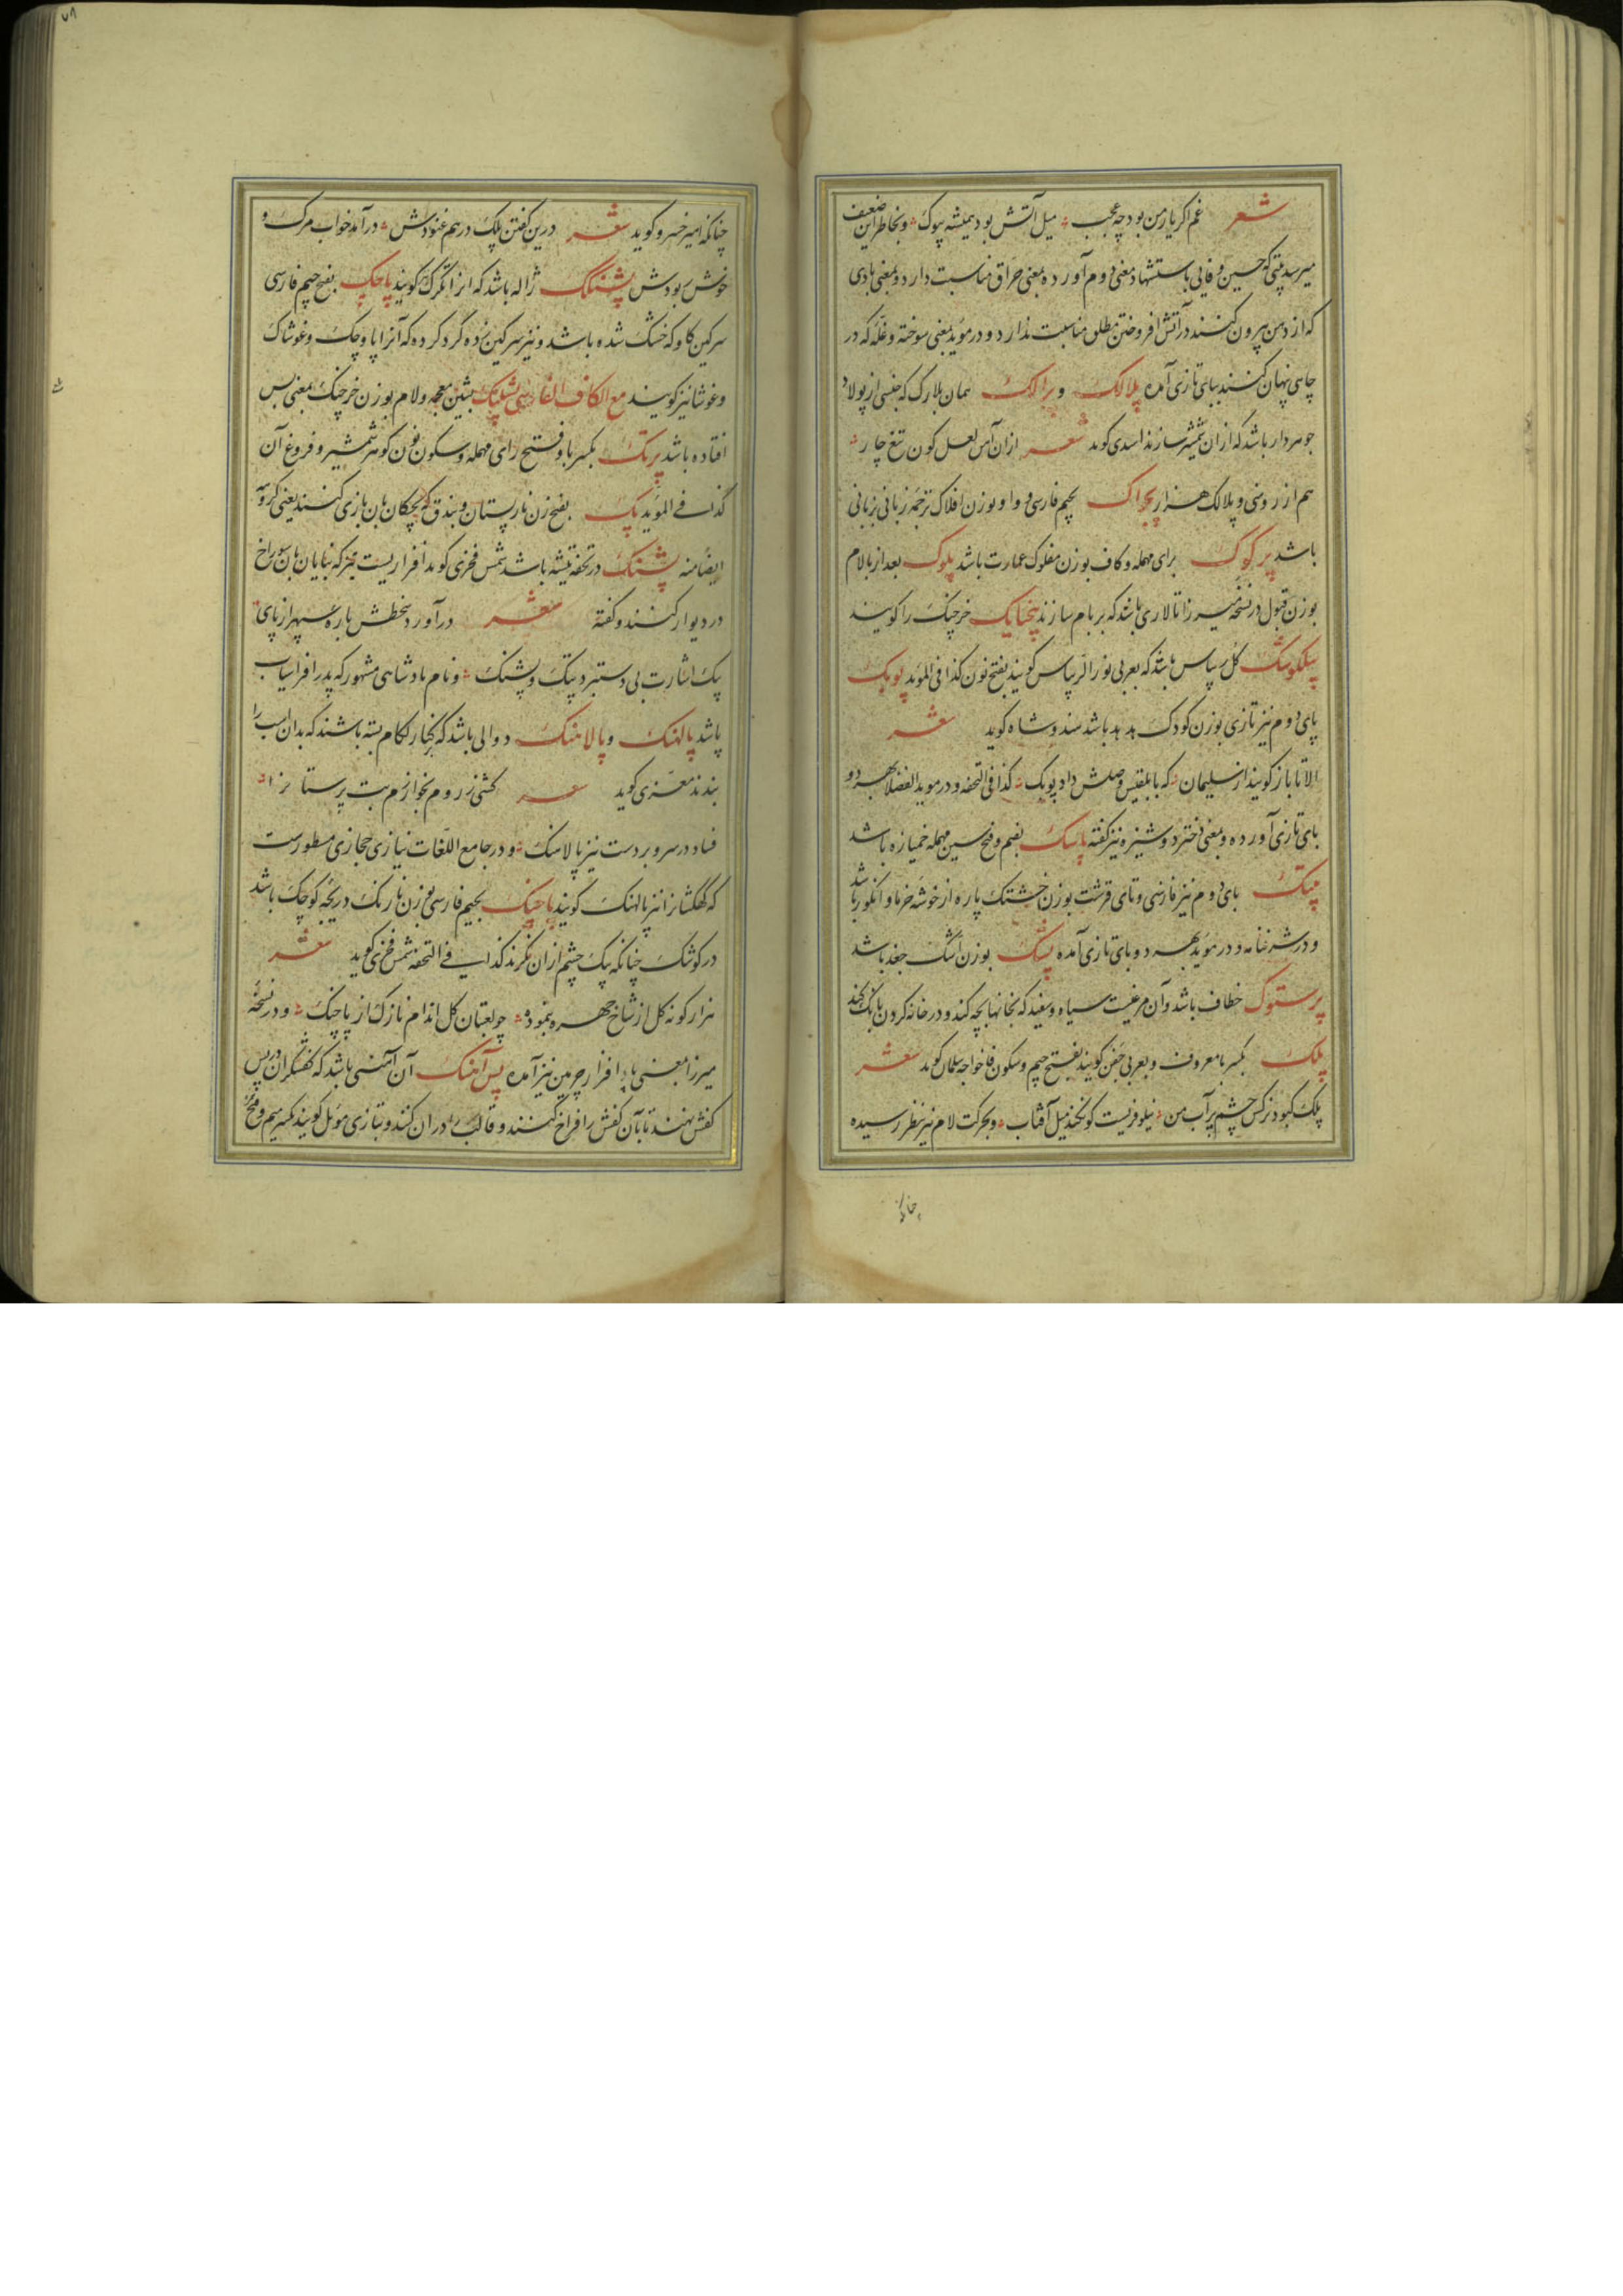 شعر غم اکر یار من بود چه عجب میل آتش بود همیشه پپوک و بخاطر این ضعیف
میرسد بیتی که حسین وفایی باستشهاد معنی دوم آورده بمعنی حراق مناسبت دارد و بمعنی بادی
که از دهن بیرون کنند در آتش افروختن مطلق مناسبت ندارد و در موید بمعنی سوخته و غله که در
چاهی پنهان کنند ببای تازی آمده پلالک و پرالک همان بلارک که جنسی از پولاد
جوهردار باشد که ازان شمشیر سازند اسدی کوید شعر ازان آس لعل کون تیغ چار
هم از روسنی و پلالک هزار پچواک بجیم فارسی و واو بوزن افلاک ترجمه زبانی بزبانی
باشد پرکوک برای مهمله و کاف بوزن مفلوک عمارت باشد پلوک بعد از با لام
بوزن قبول در نسخه میرزا تالاری باشد که بر بام سازند پنجپایک خرچنک را کویند
پیلکوشک کل پیاس باشد که بعربی نور الرپاس کویند بفتح نون کذا فی الموید پوپک
بای دوم نیز تازی بوزن کودک هدهد باشد هندوشاه کوید شعر
الا تا باز کویند از سلیمان که با بلقیس وصلش داد پوپک کذا فی التحفه و در موید الفضلا بهر دو
بای تازی آورده و بمعنی دختر دوشیزه نیز کفته پاسک بضم و فتح سین مهمله خمیازه باشد
پپتک بای دوم نیز فارسی و تای قرشت بوزن خشتک پاره از خوشه خرما و انکور باشد
و در شرفنامه و در موید بهر دو بای تازی آمده پشک بوزن اشک جغد باشد
پرستوک خطاف باشد و آن مرغیست سیاه و سفید که بخانها بچه کند و در خانه کردن بانک کند
پلک بکسر با معروف و بعربی جفن کویند بفتح جیم و سکون فا خواجه سلمان کوید شعر
پلک کبود نرکس چشم پرآب من نیلوفریست کو نکند میل آفتاب و بحرکت لام نیز بنظر رسیده
چنانکه
۷۸
چنانکه امیر خسرو کوید شعر درین کفتن پلک درهم غنودش درآمد خواب مرک و
خوش ربودش پشنکک ژاله باشد که انرا تکرک کویند پاچک بفتح جیم فارسی
سرکین کاو که خشک شده باشد و نیز سرکین زده کرد کرده که آنرا پاوچک و غوشاک
و غوشا نیز کویند مع الکاف الفارسی پشلنک بشین معجمه و لام بوزن خرچنک بمعنی پس
افتاده باشد پرنک بکسر با و فتح رای مهمله و سکون نون کوهر شمشیر و فروغ آن
کذا فی الموید پنک بفتح زن نارپستان و بندق که بچکان بان بازی کنند یعنی کروه
ایضا منه پشنک در تحفه تیشه باشد شمس فخری کوید افزاریست که بنایان بان سوراخ
در دیوار کنند و کفته شعر درآورد بخطش باره سپهر از پای
بیک اشارت بی دستبرد پتک و پشنک و نام پادشاهی مشهور که پدر افراسیاب
باشد پالهنک و پالاهنک دوالی باشد که بکنار لکام بسته باشند که بدان اسب را
بندند معزی کوید شعر کشی ز روم بخوارزم بت پرستانرا
فساد در سر و بر دست نیز پالاهنک و در جامع اللغات نیازی حجازی مسطورست
که کهکشانرا نیز پالهنک کویند پاچنک بجیم فارسی بوزن نارنک دریچه کوچک باشد
در کوشک چنانکه بیک چشم ازان نکرند کذا فی التحفه شمس فخری کوید شعر
هزار کونه کل از شاخ چهره بنموده چو لعبتان کل اندام نازک از پاچنک و در نسخه
میرزا بمعنی پا افزار چرمین نیز آمده پس آهنک آن آهنی باشد که کفشکران در پس
کفش نهند تا بآن کفش را فراخ کنند و قالب را دران کند و بتازی موبل کویند بکسر میم و فتح